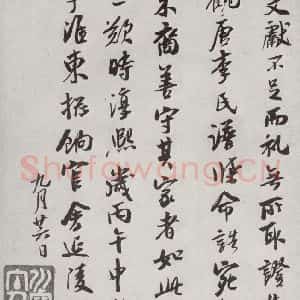 文獻不足而礼無所取證
觀唐李氏譜牒命誥宛
裔善守其家者如此
一歎時淳熙歲丙午中
淮東揔餉官舍延陵
九月廿六日
Shufawang.Cn